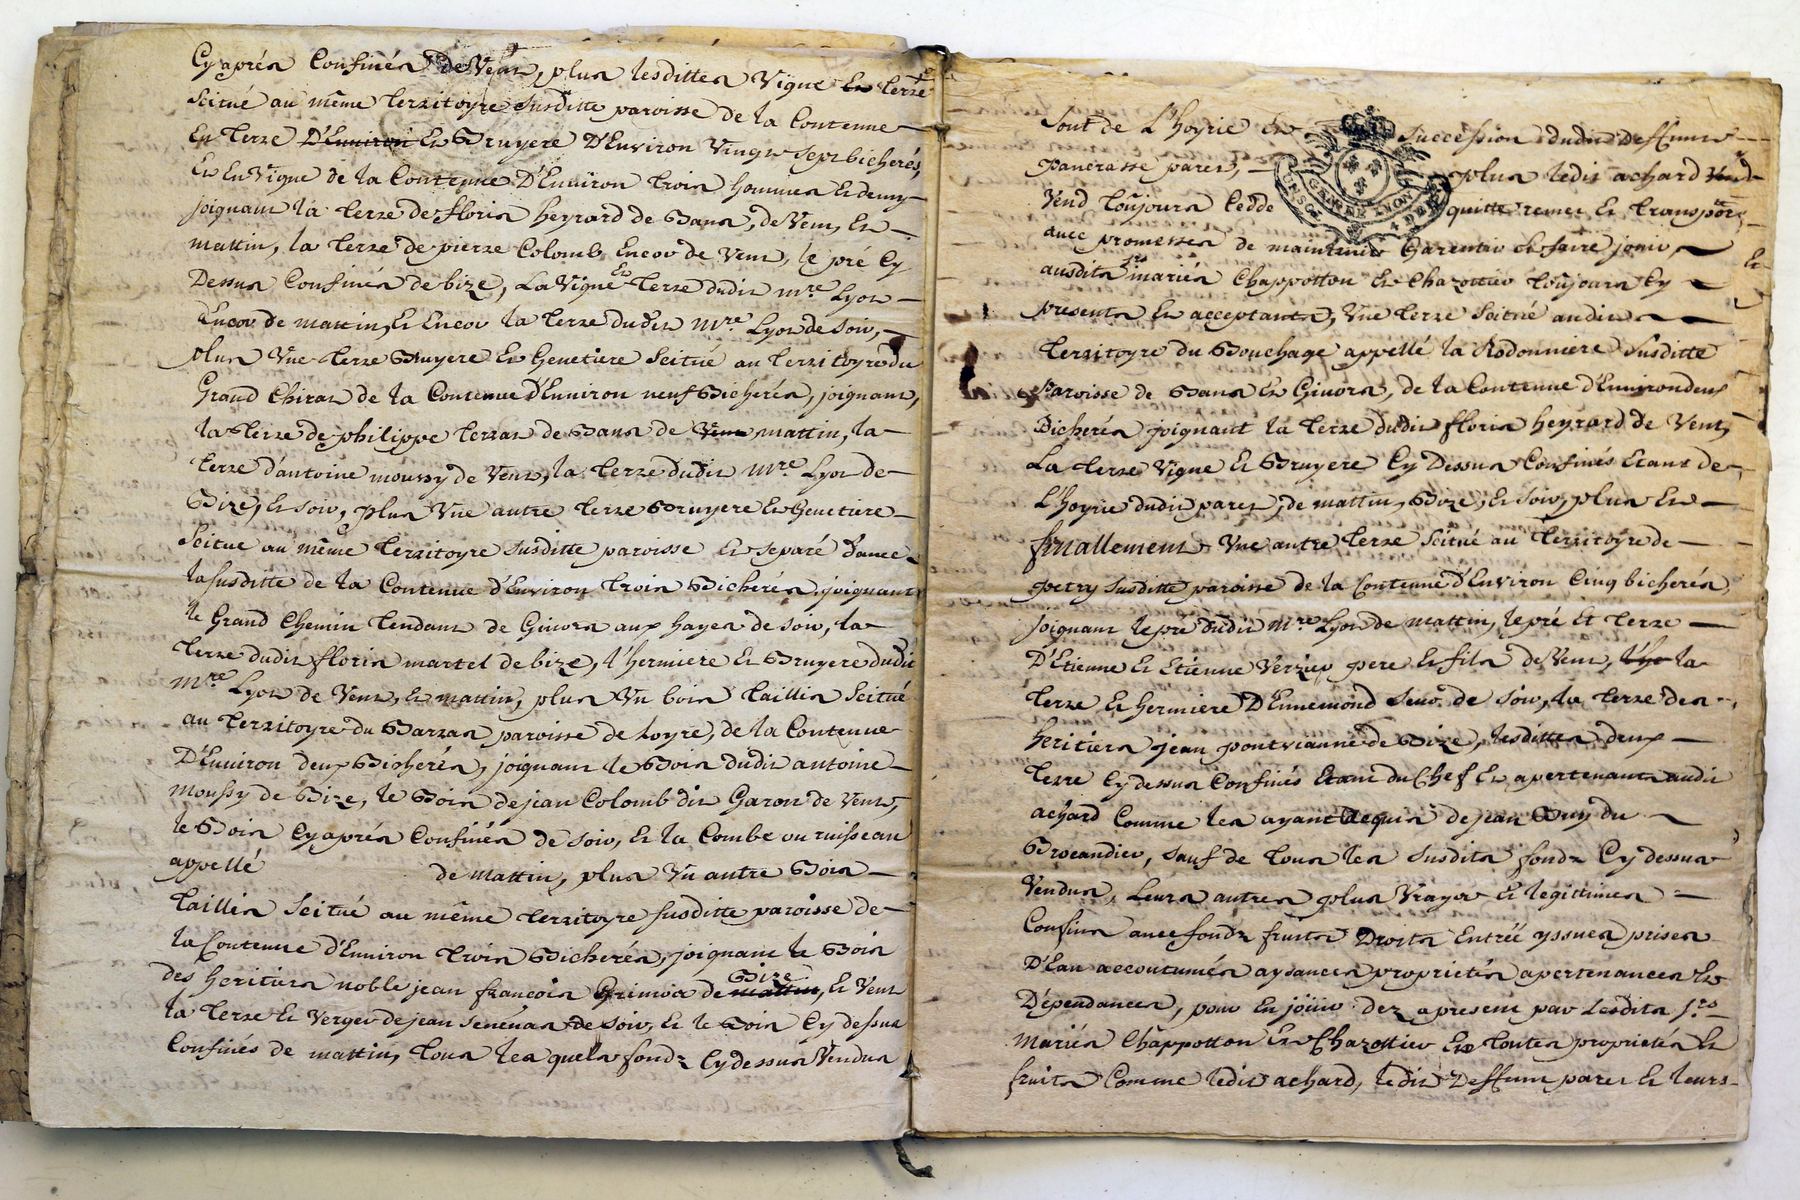 Cyaprés Confinés de Vent, plus lesdittes Vigne Et Terre
Scitué au même Territoyre susditte paroisse de la Contenue
En Terre D'Environ Et Bruyere D'Environ Vingt sept bicherés,
Et En Vigne de la Contenue D'Environ Trois hommes Et demy
joignant la Terre de floris heyrard de Bans, de Vent, Et
mattin, la Terre de pierre Colomb Encor de Vent, le pré Cy
Dessus Confinés de bize, La Vigne Et Terre dudit Mre Lyot
Encor de mattin, Et Encor la Terre dudit Mre Lyot de soir,
plus Vne Terre Bruyere Et Genetiere Scitué au Territoyre du
Grand Chirat de la Contenue D'Environ neuf Bicherés, joignant,
la Terre de philippe Terrat de Bans de Vent mattin, la
Terre d'antoine moussy de Vent, la Terre dudit Mre Lyot de
Bize, Et soir, plus Vne autre Terre Bruyere Et Genetiere
Scitue au même Territoyre susditte paroisse Et separé d'avec
la susditte de la Contenue d'Environ Trois Bicherés, joignant
le Grand Chemin Tendant de Givors aux hayes de soir, la
Terre dudit floris martel de bize, l'hermiere Et Bruyere dudit
Mre Lyot de Vent, Et mattin, plus Vn bois Taillis Scitué
au Territoyre du Barras paroisse de Loyre, de la Contenue
D'Environ deux Bicherés, joignant le Bois dudit antoine
moussy de Bize, le Bois de jean Colomb dit Garon de Vent,
le Bois Cyaprés Confinés de soir, Et la Combe ou ruisseau
appellé de mattin, plus Vn autre Bois
Taillis Scitué au même Territoyre susditte paroisse de
la Contenue d'Environ Trois Bicherés, joignant le Bois
des heritiers noble jean françois Grimod de mattin Bize, Et Vent
la Terre Et Verger de jean senénas de soir, Et le Bois Cy dessus
Confinés de mattin, Tous les quels fondz Cydessus Vendus
Sont de L'hoyrie Et Succession dudit Deffunt
Pancrasse paret, plus ledit achard Vend
Vend Toujours Cedde quitte remet Et Transporte,
avec promesses de maintenir Garentir Et faire jouir
ausdits srs mariés Chappotton Et Chazottier Toujours Cy
presents Et acceptants, Vne Terre Scitué audit
Territoyre du Bouchage appellé la Rodonniere Susditte
Paroisse de Bans Et Givors, de la Contenue d'Environ deux
Bicherés joignant la Terre dudit floris heyrard de Vent,
La Terre Vigne Et Bruyere Cy Dessus Confinés Etant de
L'hoyrie dudit paret, de mattin, Bize, Et soir, plus Et
finallement Vne autre Terre Scitué au Territoyre de
petry susditte paroisse de la Contenue d'Environ Cinq bicherés,
joignant le pré dudit Mre Lyot de mattin, le pré Et Terre
D'Etienne Et Etienne Verzier pere Et fils de Vent, l'he la
Terre Et hermiere D'Ennemond Seur de soir, la Terre des
heritiers jean pontvianne de Bize, lesdittes deux
Terre Cydessus Confinés Etant du Chef Et apertenants audit
achard Comme les ayant Acquis de jean Buy du
Brocandier, sauf de Tous les susdits fondz Cy dessus
Vendus, Leurs autres plus Vrayes Et legitimes
Confins avec fondz fruits Droits Entréé yssues prises
D'Eau accoutumés aysances proprietés apertenances Et
Dépendances, pour En jöuir dez apresent par Lesdits Srs
Mariés Chappotton Et Chazottier En Toutes proprietés Et
fruits Comme ledit achard, ledit Deffunt paret Et leurs